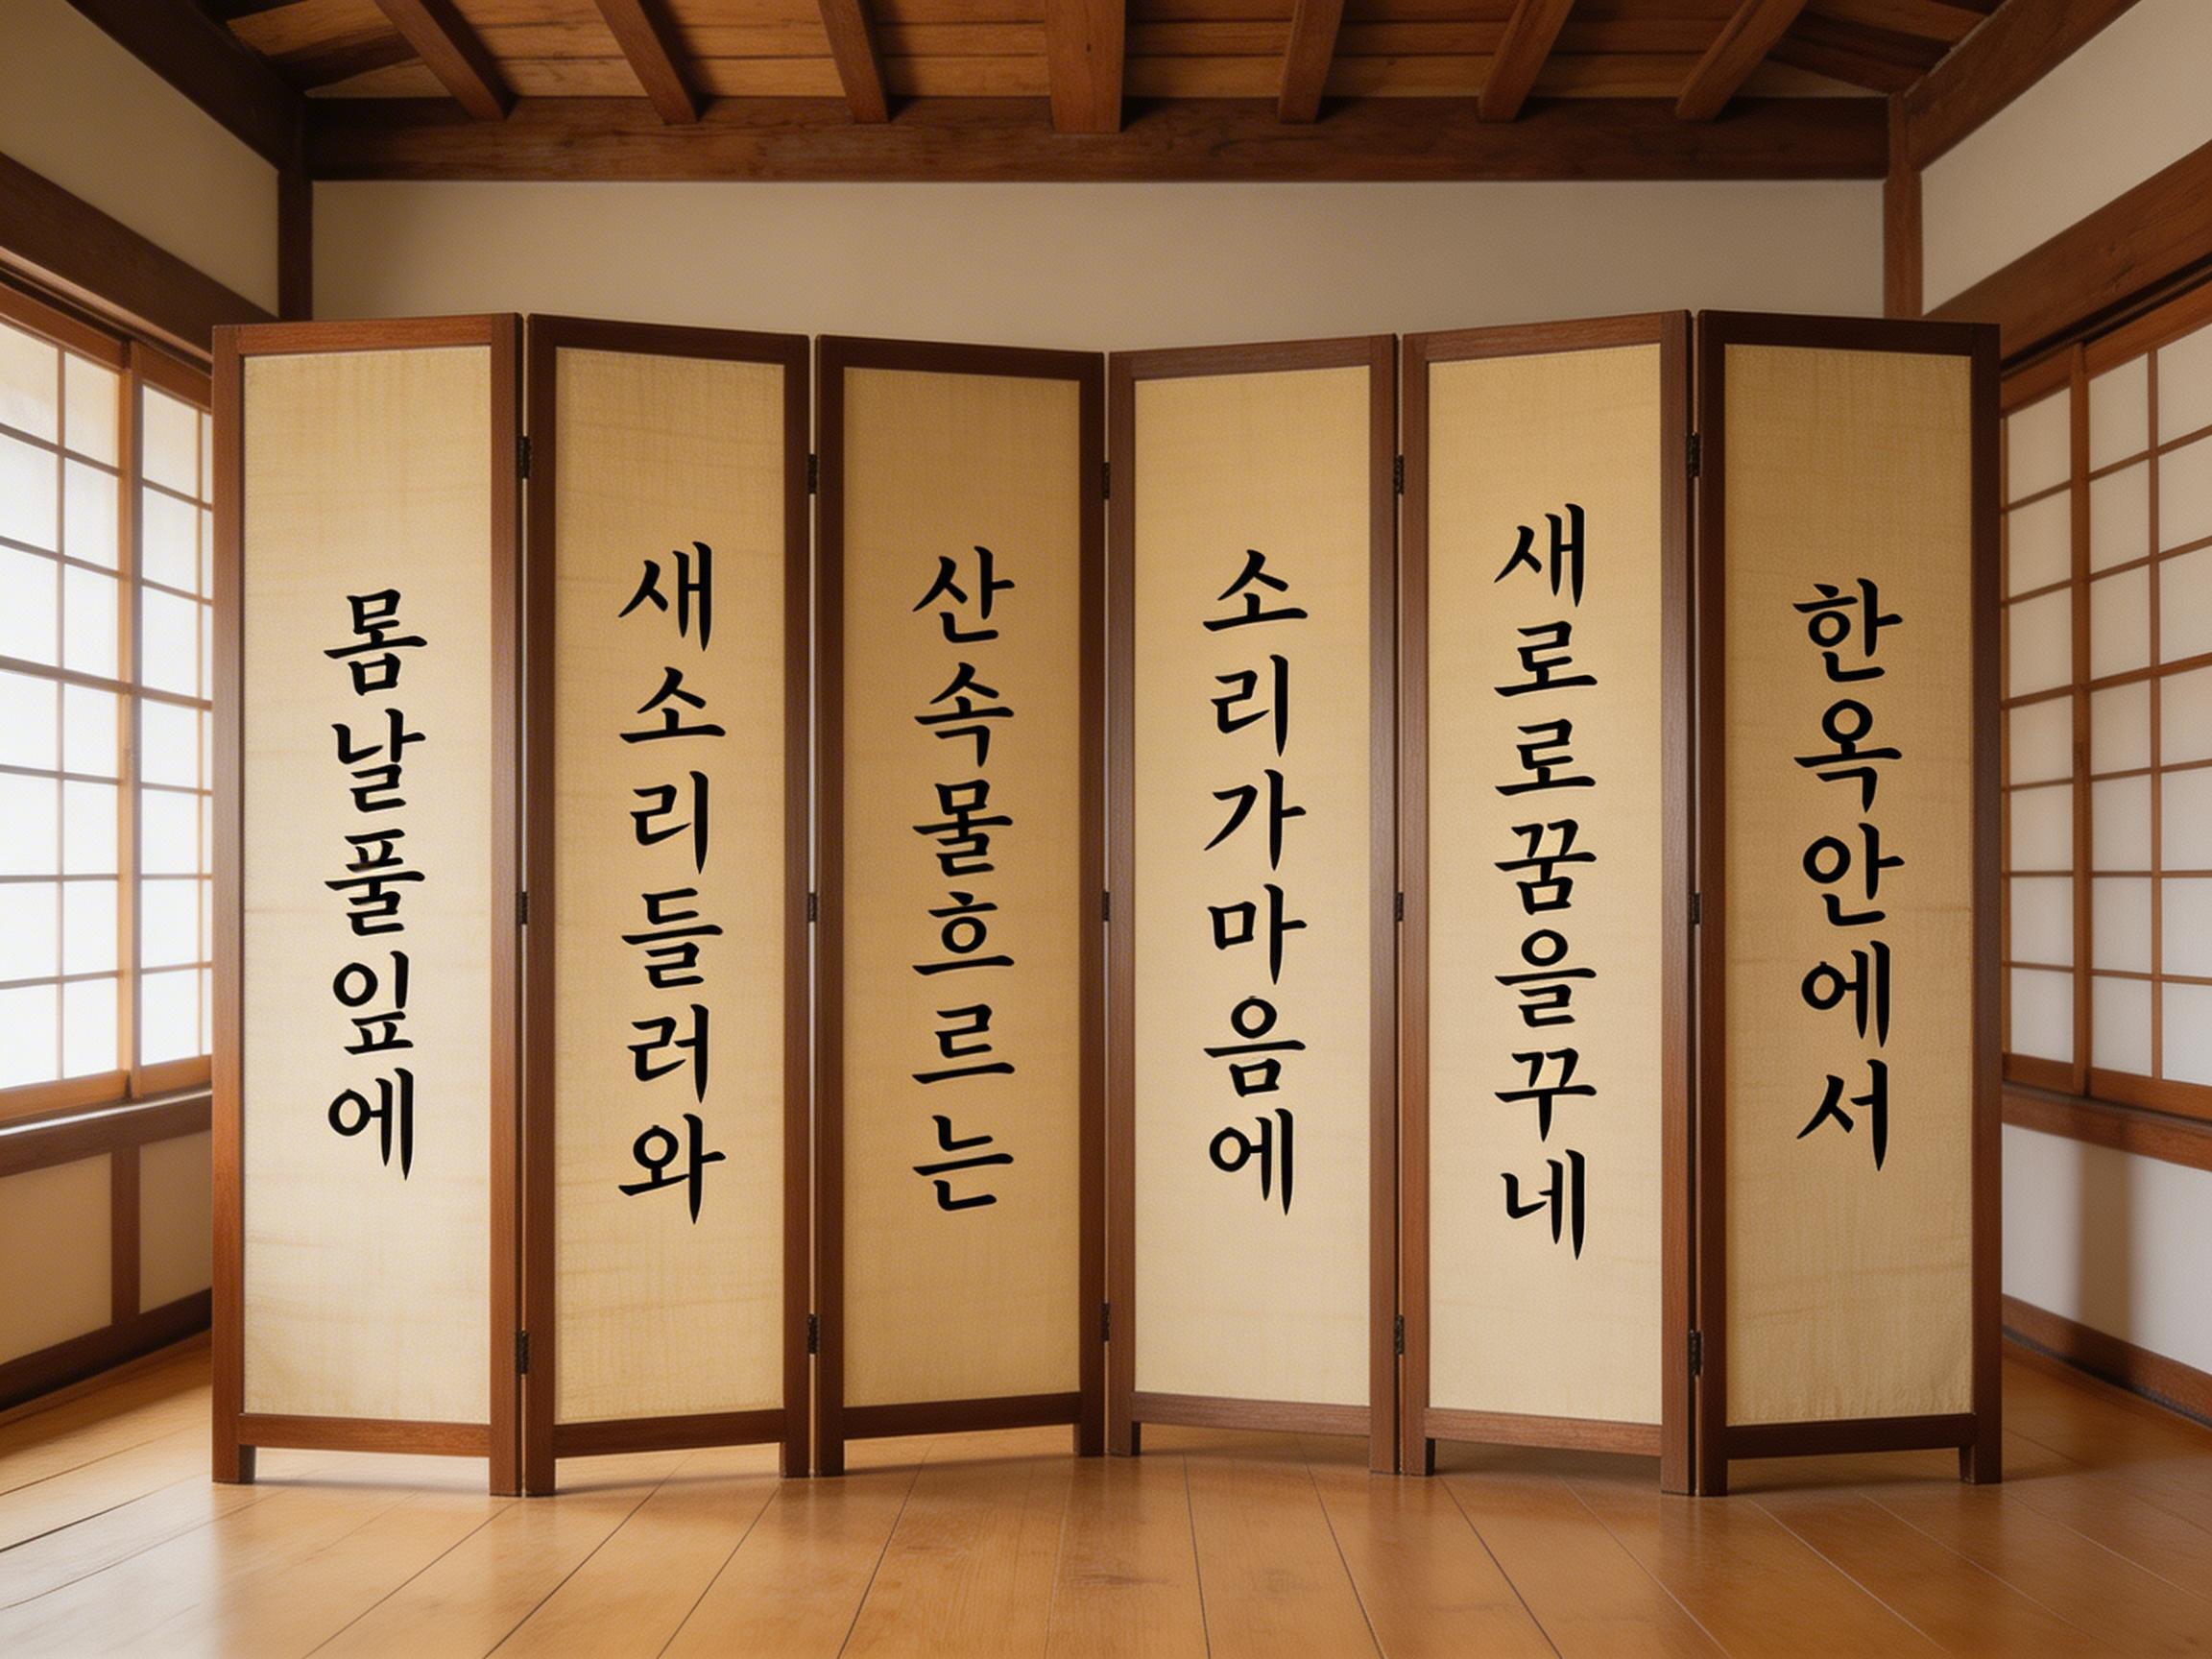 몸날풀잎에
새소리들러와
산속물흐르는
소리가마음에
새로로꿈을꾸네
한옥안에서